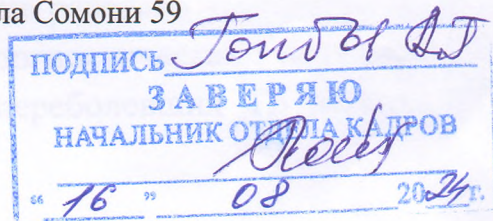 ла Сомони 59
ПОДПИСЬ
ЗАВЕРЯЮ
НАЧАЛЬНИК ОТДЕЛА КАДРОВ
" 16 " 08 2024 г.